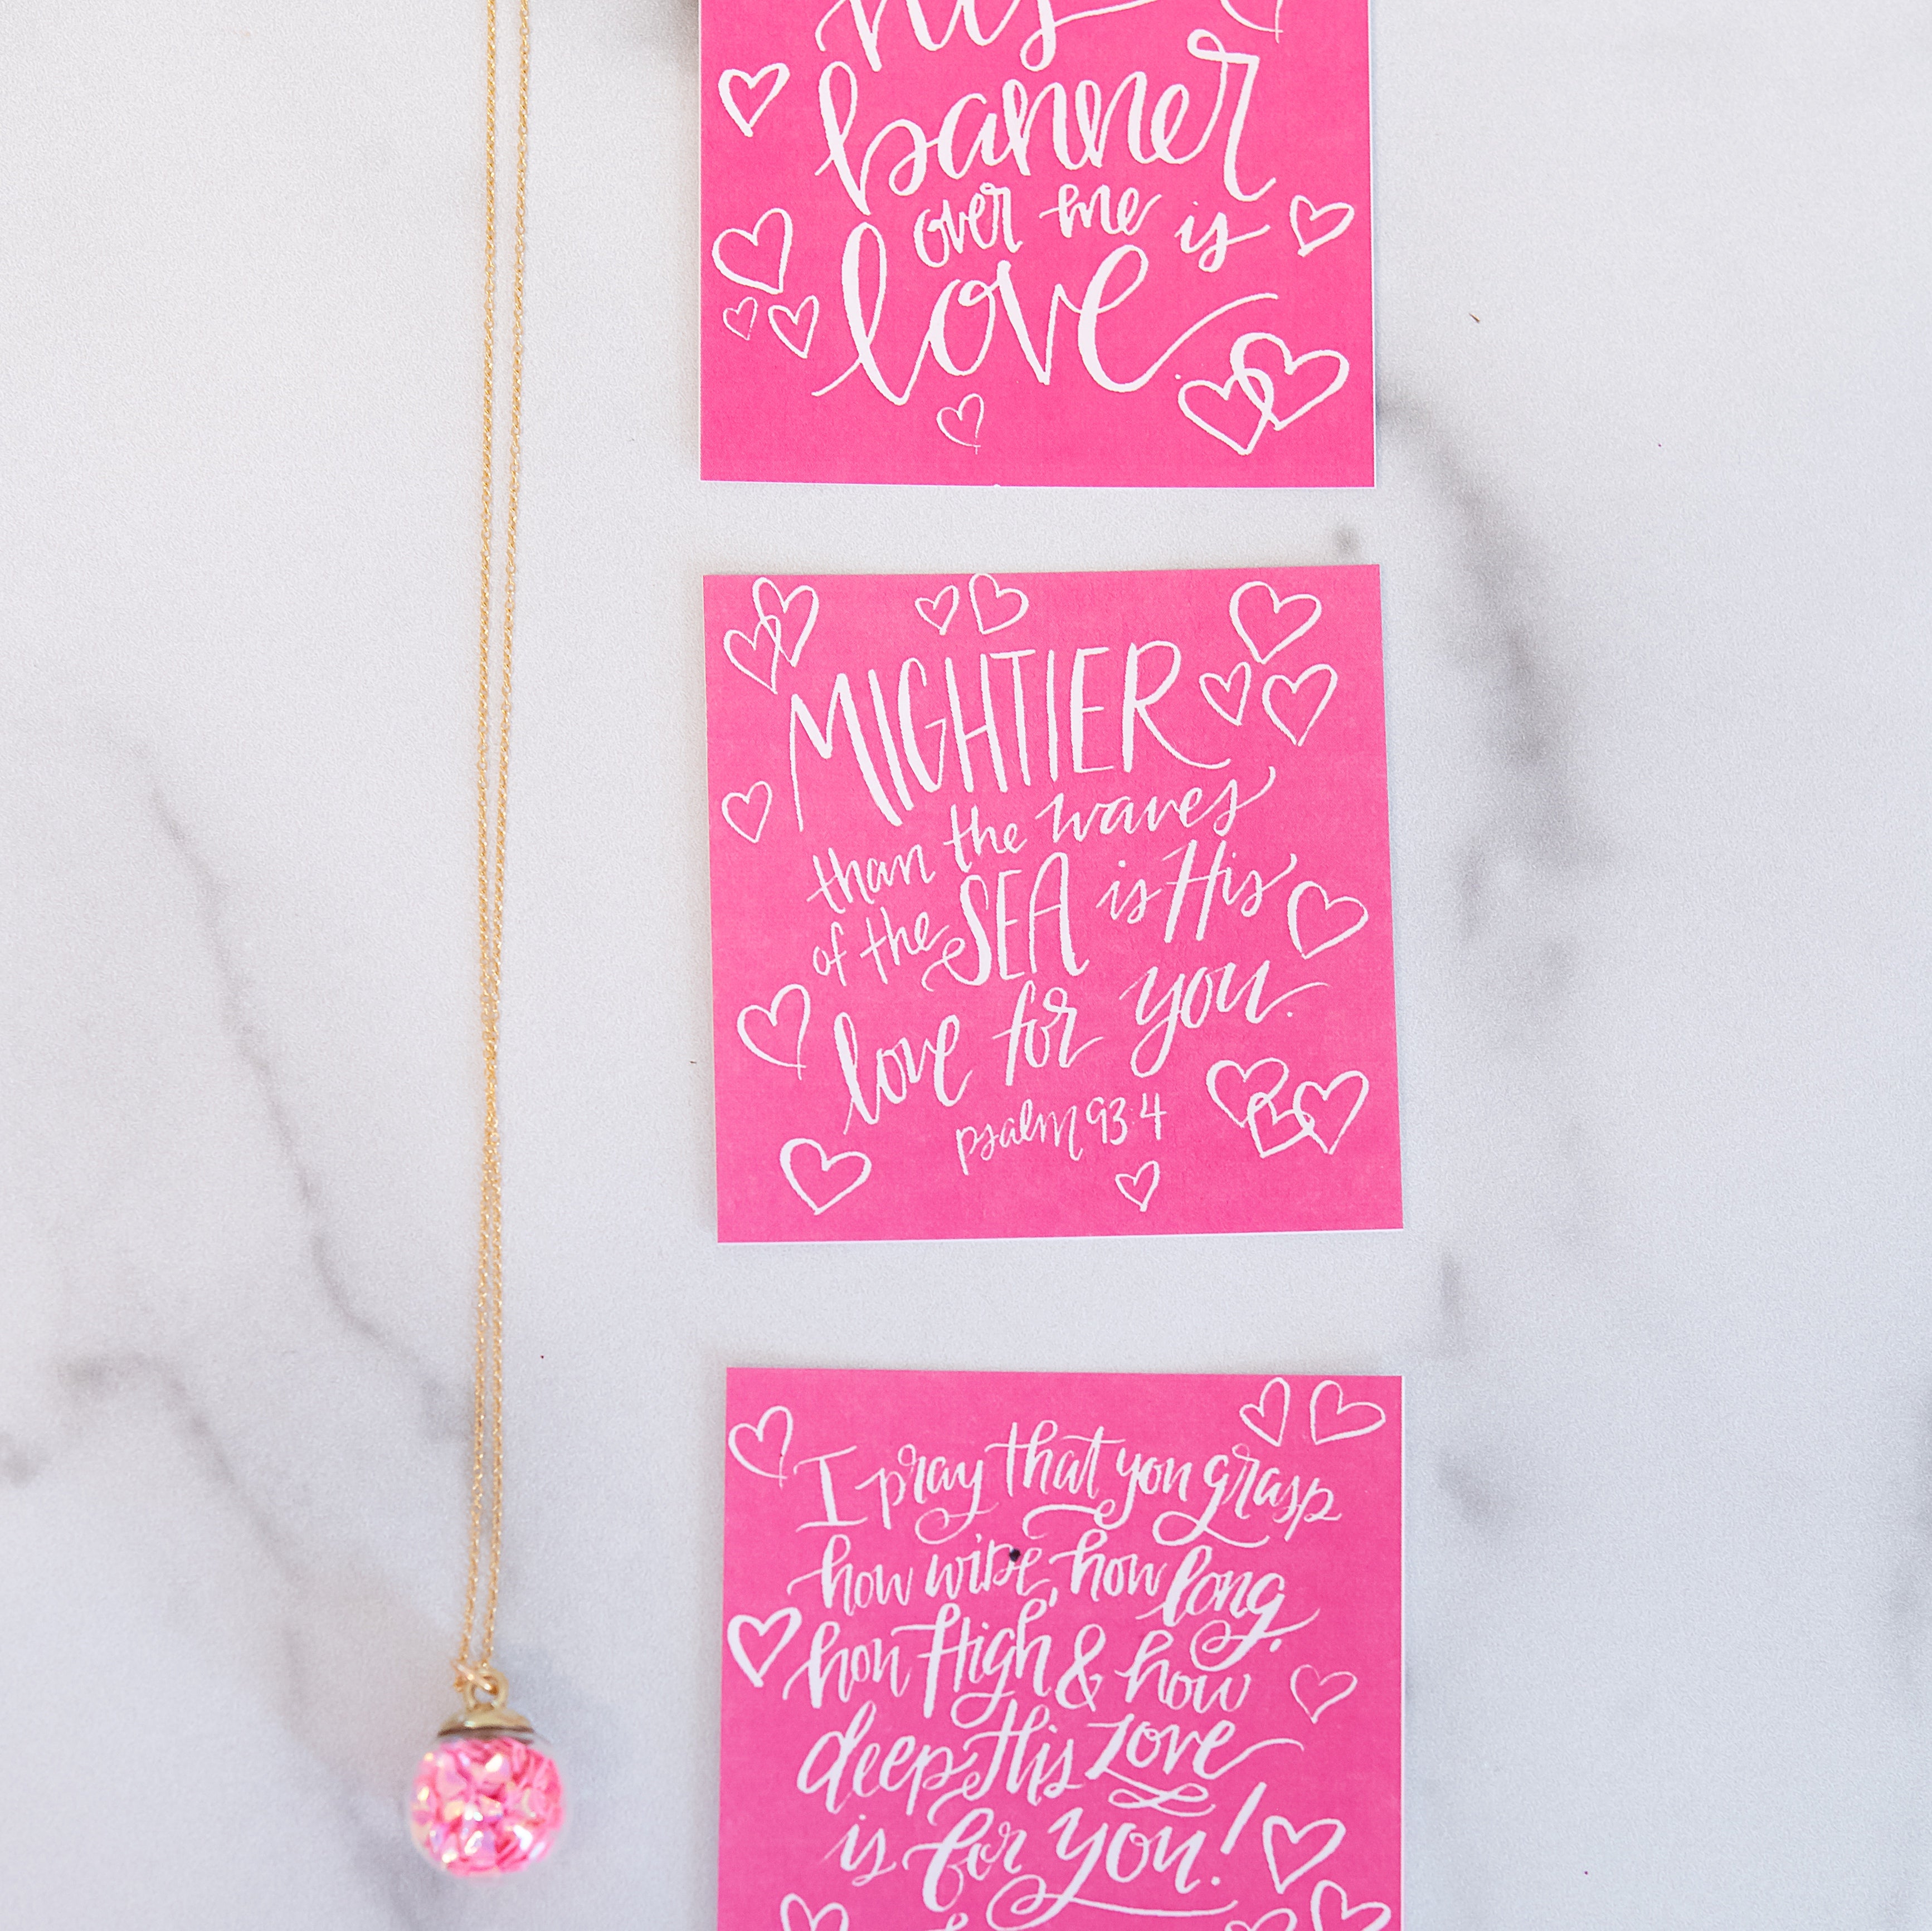 his
banner
over me is
love.
MIGHTIER
than the waves
of the SEA is His
love for you.
psalm 93:4
I pray that you grasp
how wide, how long,
how High & how
deep His Love
is for you!